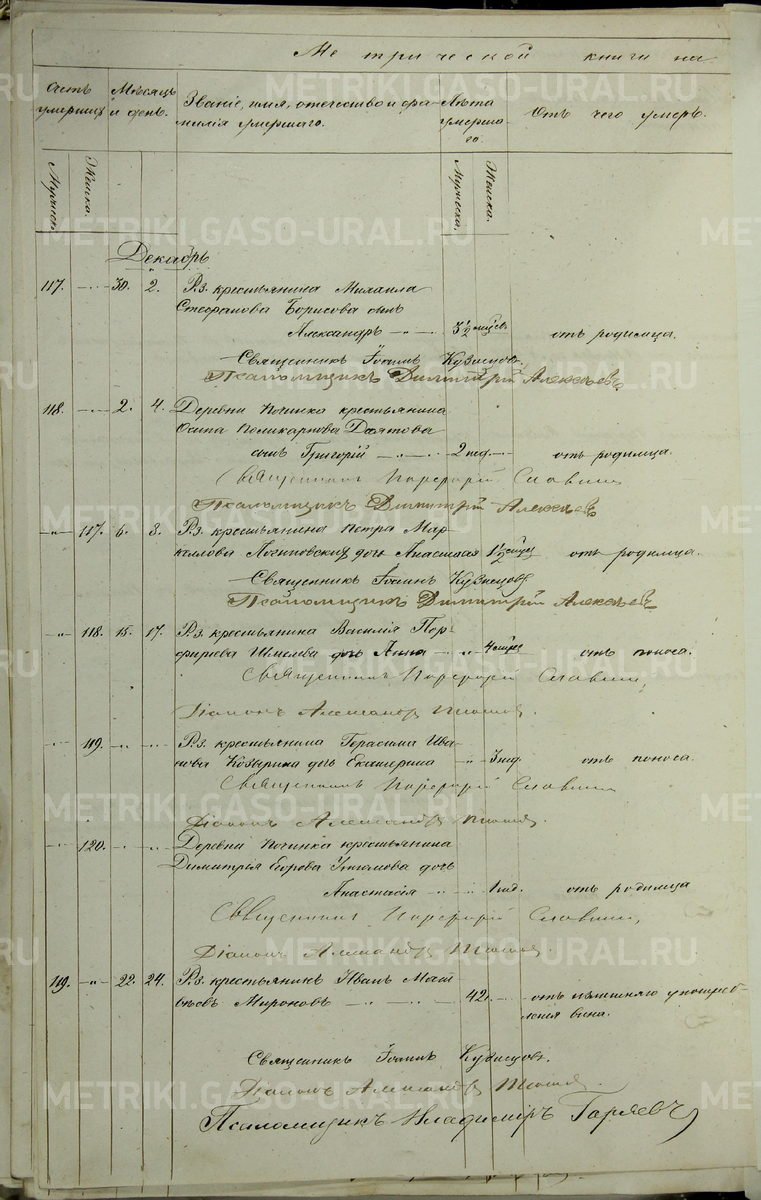 Метрической книги на
Счетъ умершихъ Мѣсяцъ и день. Званіе, имя, отечество и фамилія умершаго. Лѣта умершаго. Отъ чего умеръ.
Мужеска. Женска. Мужеска. Женска.
METRIKI.GASO-URAL.RU
Декабрь
117. 30. 2. Р.з. крестьянина Михаила
Стефанова Борисова сынъ
Александръ 3½ мѣсяц. отъ родимца.
Священникъ Іоаннъ Кузнецовъ.
Псаломщикъ Димитрій Алексѣевъ
118. 2. 4. Деревни Починка крестьянина
Осипа Поликарпова
сынъ Григорій 2 нед. отъ родимца.
Священникъ Порфирій Славнинъ
Псаломщикъ Димитрій Алексѣевъ
117. 6. 8. Р.з. крестьянина Петра Мар-
келлова дочь Анастасія 1½ мѣсяц отъ родимца.
Священникъ Іоаннъ Кузнецовъ
Псаломщикъ Димитрій Алексѣевъ
118. 15. 17. Р.з. крестьянина Василія Пор-
фирьева Шмелева дочь Анна 4 мѣсяц отъ поноса.
Священникъ Порфирій Славнинъ,
Діаконъ Александръ
119. Р.з. крестьянина Герасима Ива-
нова Козырина дочь Екатерина 3 нед. отъ поноса.
Священникъ Порфирій Славнинъ
Діаконъ Александръ
120. Деревни Починка крестьянина
Димитрія Егорова дочь
Анастасія 1 нед. отъ родимца
Священникъ Порфирій Славнинъ,
Діаконъ Александръ
119. 22. 24. Р.з. крестьянинъ Иванъ Мат-
вѣевъ Мироновъ 42. отъ излишняго употреб-
ленія вина.
Священникъ Іоаннъ Кузнецовъ.
Діаконъ Александръ
Псаломщикъ Владиміръ Гаряевъ